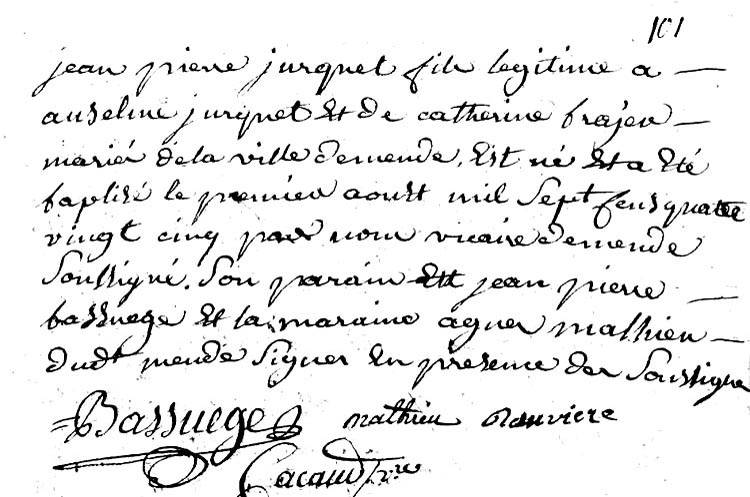 101
jean pierre jurquet fils legitime a
anselme jurquet et de catherine
mariés de la ville de mende, est né et a été
baptisé le premier aoust mil sept sens quatre
vingt cinq par nous vicaire de mende
soussigné. son parain est jean pierre
bassuege et la maraine agnes mathieu
dudt mende signes en presence des soussignes
Bassuege mathieu Rouviere
vre